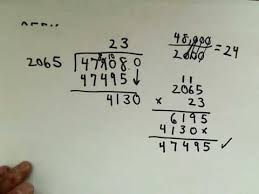 23
2065 479080
47495 ↓
4130
48,000
2000 = 24
11
2065
× 23
6195
4130×
47495 ✓